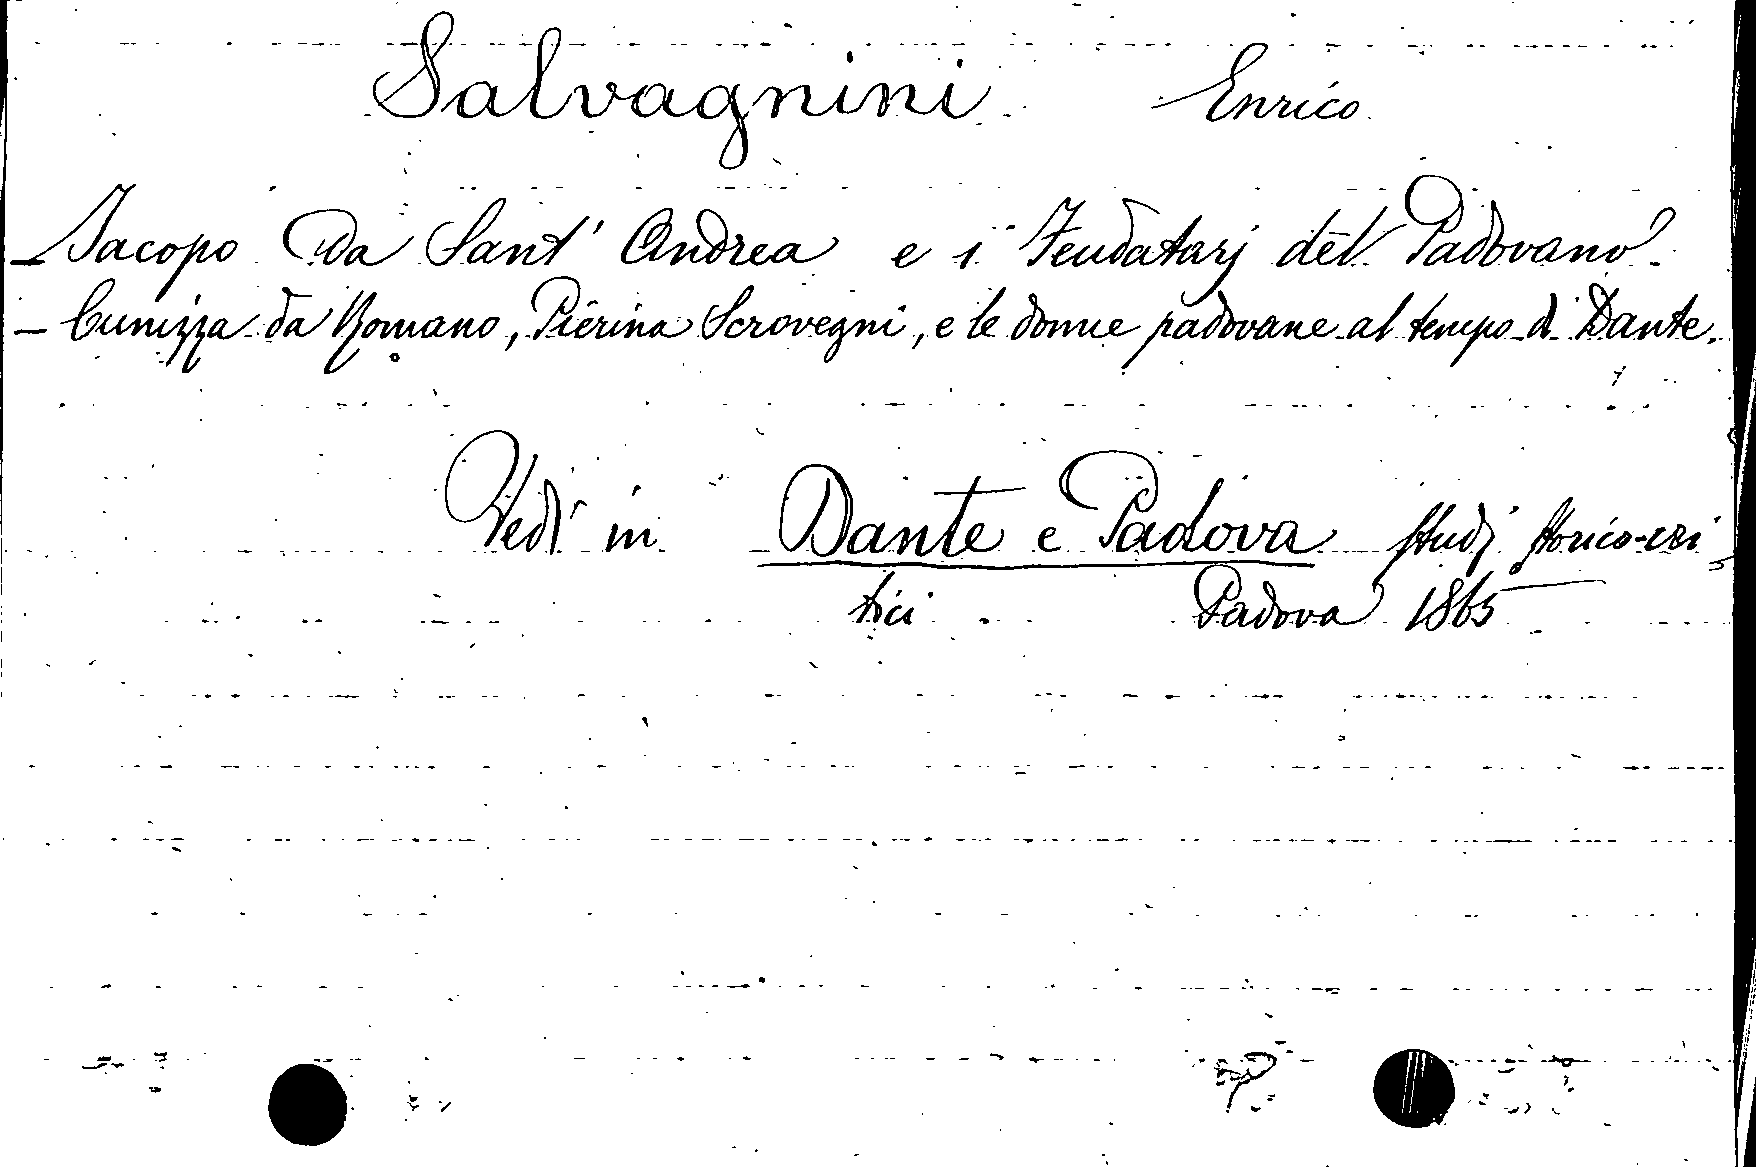 Salvagnini Enrico
- Jacopo Da Sant' Andrea e i Feudatarj del Padovano -
- Cunizza da Romano, Pierina Scrovegni, e le donne padovane al tempo di Dante.
Vedi in Dante e Padova studj storico-cri-
tici Padova 1865